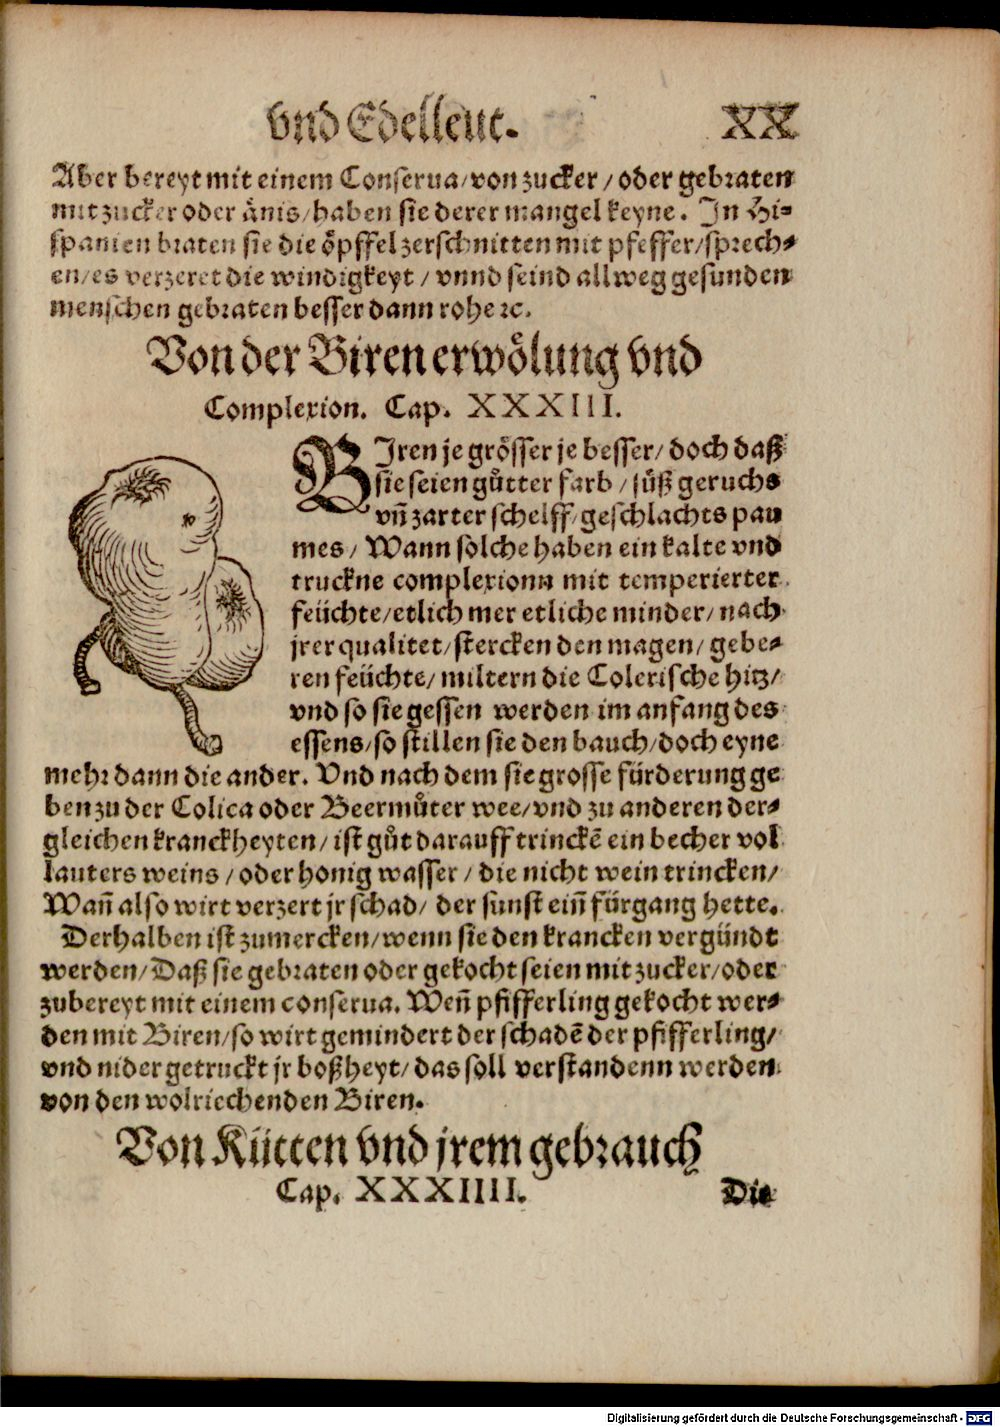 vnd Edelleut. XX
Aber bereyt mit einem Conserua/von zucker/oder gebraten
mit zucker oder änis/haben sie derer mangel keyne. In Hi⸗
spanien braten sie die öpffel zerschnitten mit pfeffer/sprech⸗
en/es verzeret die windigkeyt/vnnd seind allweg gesunden
menschen gebraten besser dann rohe ꝛc.
Von der Biren erwölung vnd
Complexion. Cap. XXXIII.
BIren je grösser je besser/doch daß
sie seien gůtter farb/süß geruchs
vñ zarter schelff/geschlachts pau
mes/Wann solche haben ein kalte vnd
truckne complexionn mit temperierter
feüchte/etlich mer etliche minder/nach
jrer qualitet/stercken den magen/gebe⸗
ren feüchte/miltern die Colerische hitz/
vnd so sie gessen werden im anfang des
essens/so stillen sie den bauch/doch eyne
mehr dann die ander. Vnd nach dem sie grosse fürderung ge
ben zu der Colica oder Beermůter wee/vnd zu anderen der⸗
gleichen kranckheyten/ist gůt darauff trinckē ein becher vol
lauters weins/oder honig wasser/die nicht wein trincken/
Wañ also wirt verzert jr schad/der sunst eiñ fürgang hette.
Derhalben ist zumercken/wenn sie den krancken vergündt
werden/Daß sie gebraten oder gekocht seien mit zucker/oder
zubereyt mit einem conserua. Weñ pfifferling gekocht wer⸗
den mit Biren/so wirt gemindert der schadē der pfifferling/
vnd nider getruckt jr boßheyt/das soll verstandenn werden
von den wolriechenden Biren.
Von Kütten vnd jrem gebrauch
Cap. XXXIIII. Die
Digitalisierung gefördert durch die Deutsche Forschungsgemeinschaft - DFG